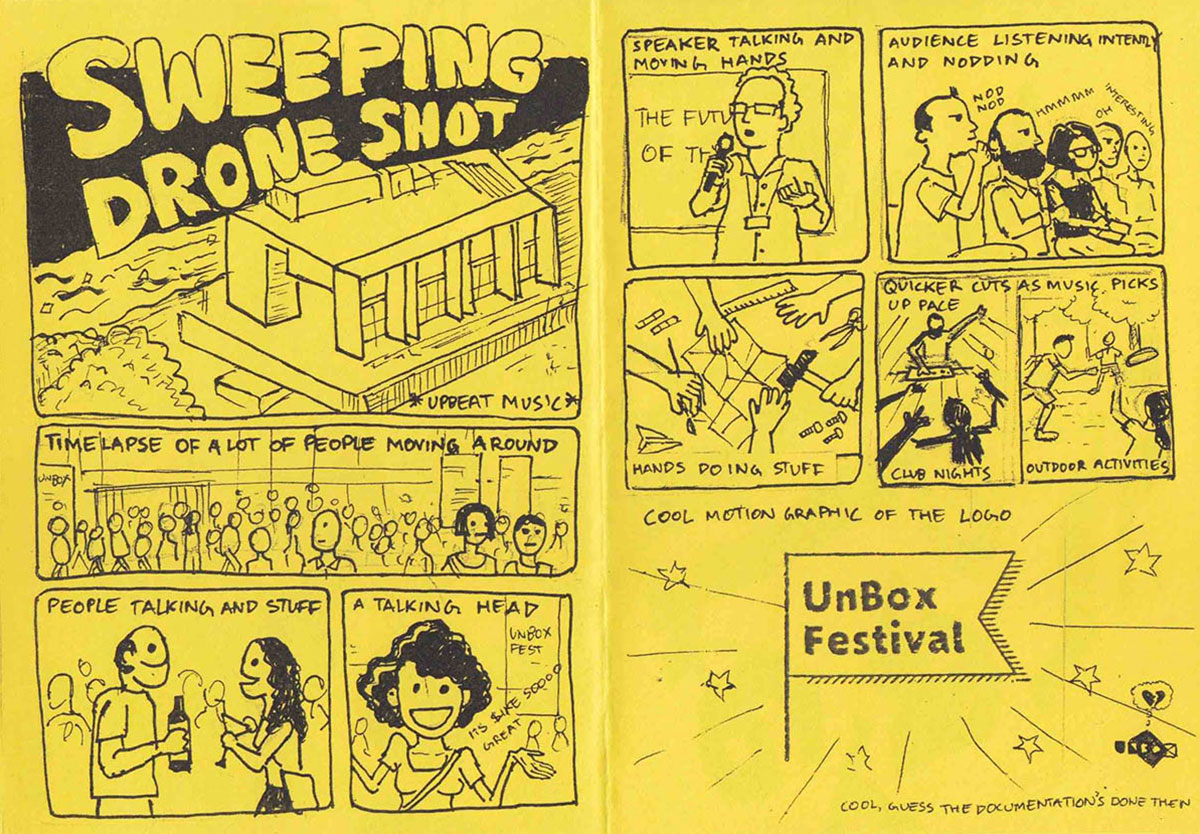 SWEEPING
DRONE SHOT
*UPBEAT MUSIC*
TIMELAPSE OF A LOT OF PEOPLE MOVING AROUND
UNBOX
PEOPLE TALKING AND STUFF
A TALKING HEAD
UNBOX
FEST
ITS LIKE SOOOO
GREAT
SPEAKER TALKING AND
MOVING HANDS
THE FUTU
OF TH
AUDIENCE LISTENING INTENTLY
AND NODDING
NOD
NOD
HMMMMM
OH
INTERESTING
HANDS DOING STUFF
QUICKER CUTS AS MUSIC PICKS
UP PACE
CLUB NIGHTS
OUTDOOR ACTIVITIES
COOL MOTION GRAPHIC OF THE LOGO
UnBox
Festival
COOL, GUESS THE DOCUMENTATION'S DONE THEN